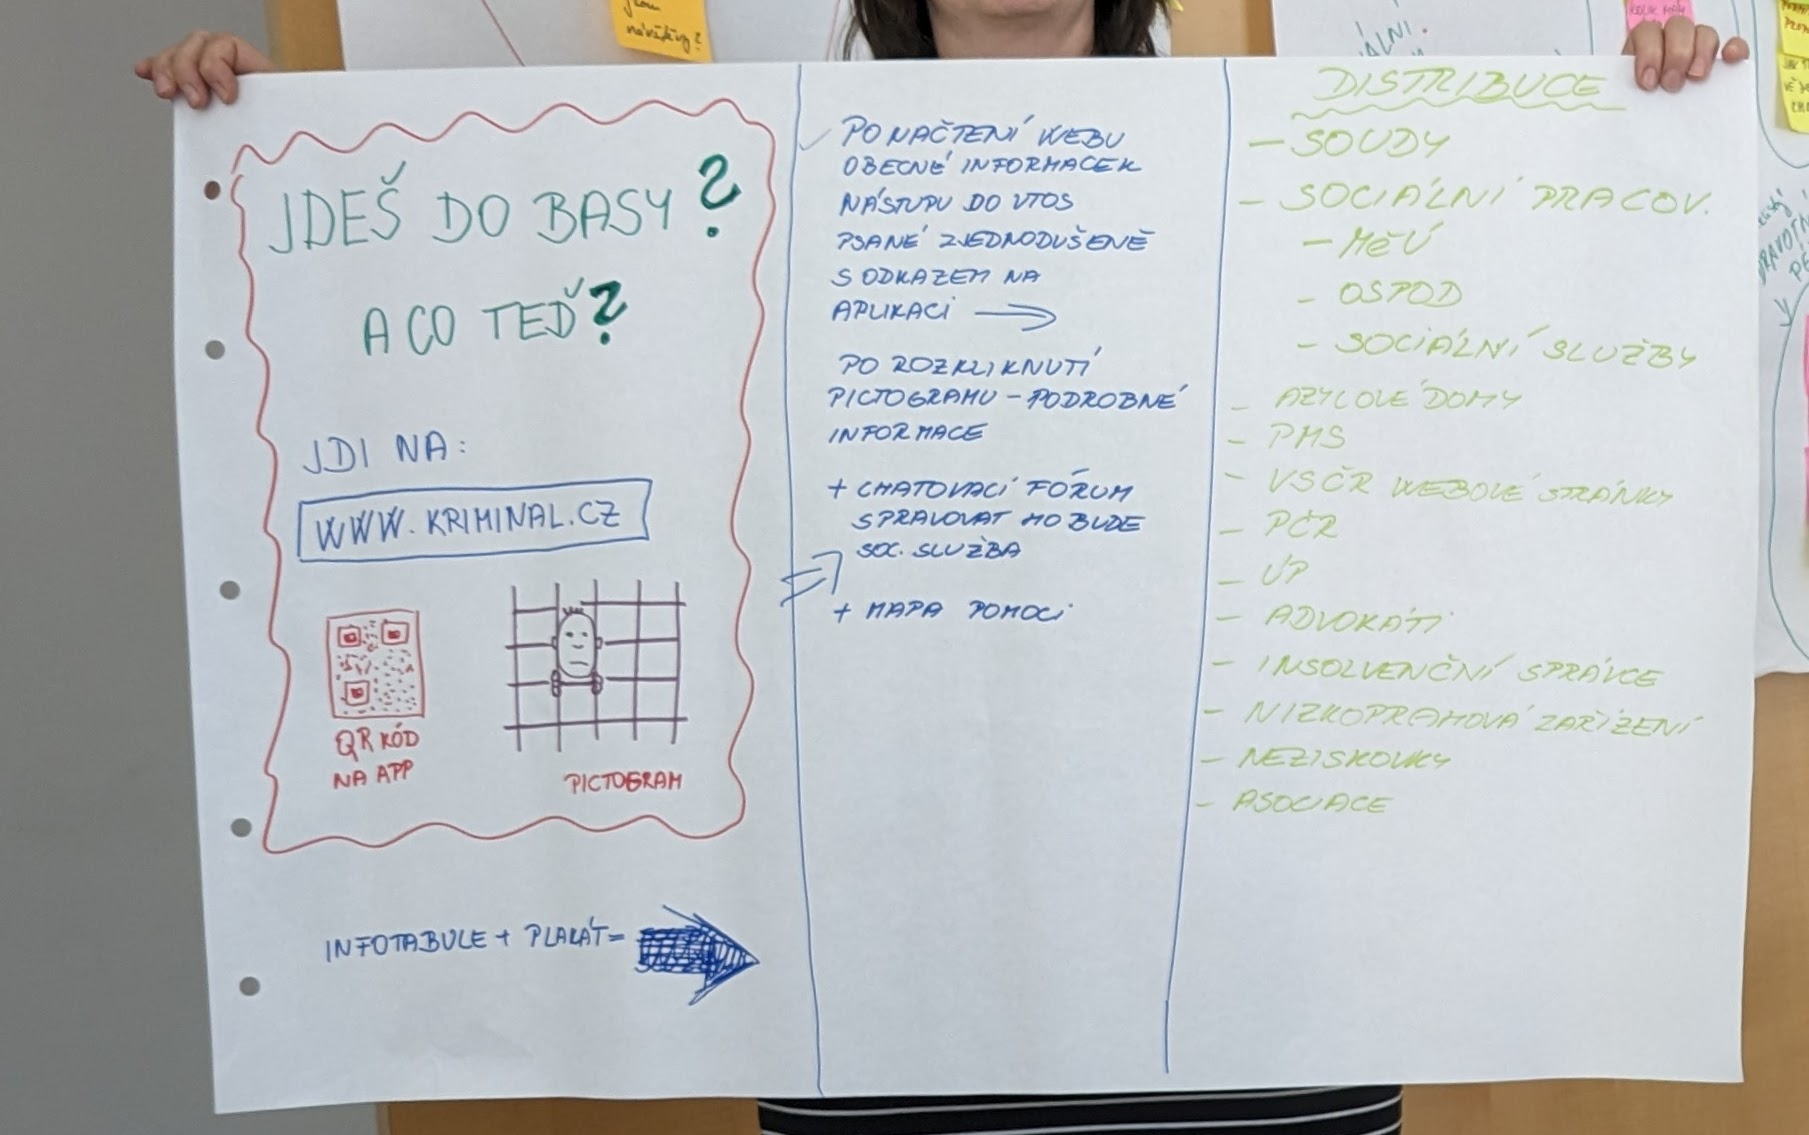 JDEŠ DO BASY?
A CO TEĎ?
JDI NA:
WWW.KRIMINAL.CZ
QR KÓD
NA APP
PICTOGRAM
INFOTABULE + PLAKÁT =
PO NAČTENÍ WEBU
OBECNÉ INFORMACE K
NÁSTUPU DO VTOS
PSANÉ ZJEDNODUŠENĚ
S ODKAZEM NA
APLIKACI →
PO ROZKLIKNUTÍ
PICTOGRAMU – PODROBNÉ
INFORMACE
+ CHATOVACÍ FÓRUM
SPRAVOVAT HO BUDE
SOC. SLUŽBA
+ MAPA POMOCI
DISTRIBUCE
– SOUDY
– SOCIÁLNÍ PRACOV.
– MěÚ
– OSPOD
– SOCIÁLNÍ SLUŽBY
– AZYLOVÉ DOMY
– PMS
– VSČR WEBOVÉ STRÁNKY
– PČR
– ÚP
– ADVOKÁTI
– INSOLVENČNÍ SPRÁVCE
– NÍZKOPRAHOVÁ ZAŘÍZENÍ
– NEZISKOVKY
– ASOCIACE